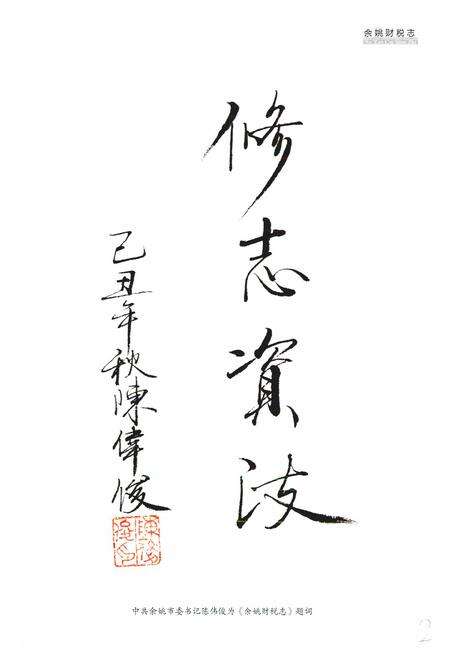 余姚财税志
修志資政
己丑年秋陳偉俊
中共余姚市委书记陈伟俊为《余姚财税志》题词
2